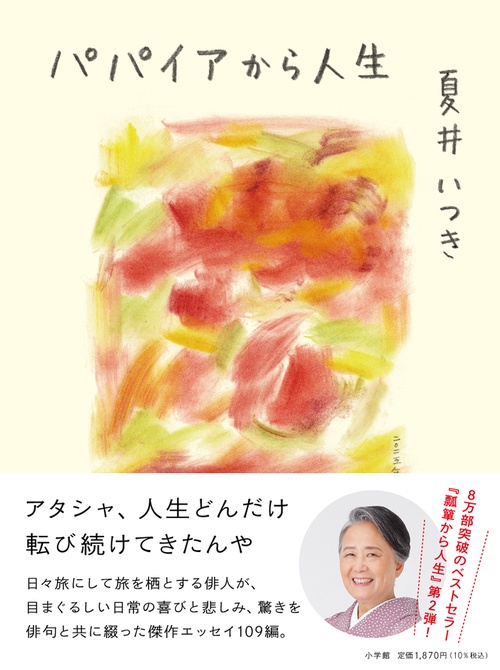 パパイアから人生
夏井いつき
アタシャ、人生どんだけ
転び続けてきたんや
日々旅にして旅を栖とする俳人が、
目まぐるしい日常の喜びと悲しみ、驚きを
俳句と共に綴った傑作エッセイ109編。
8万部突破のベストセラー
『瓢簞から人生』第2弾！
小学館 定価1,870円（10％税込）